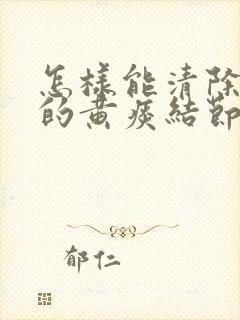 怎樣能清除
的黄痰結節
郁仁